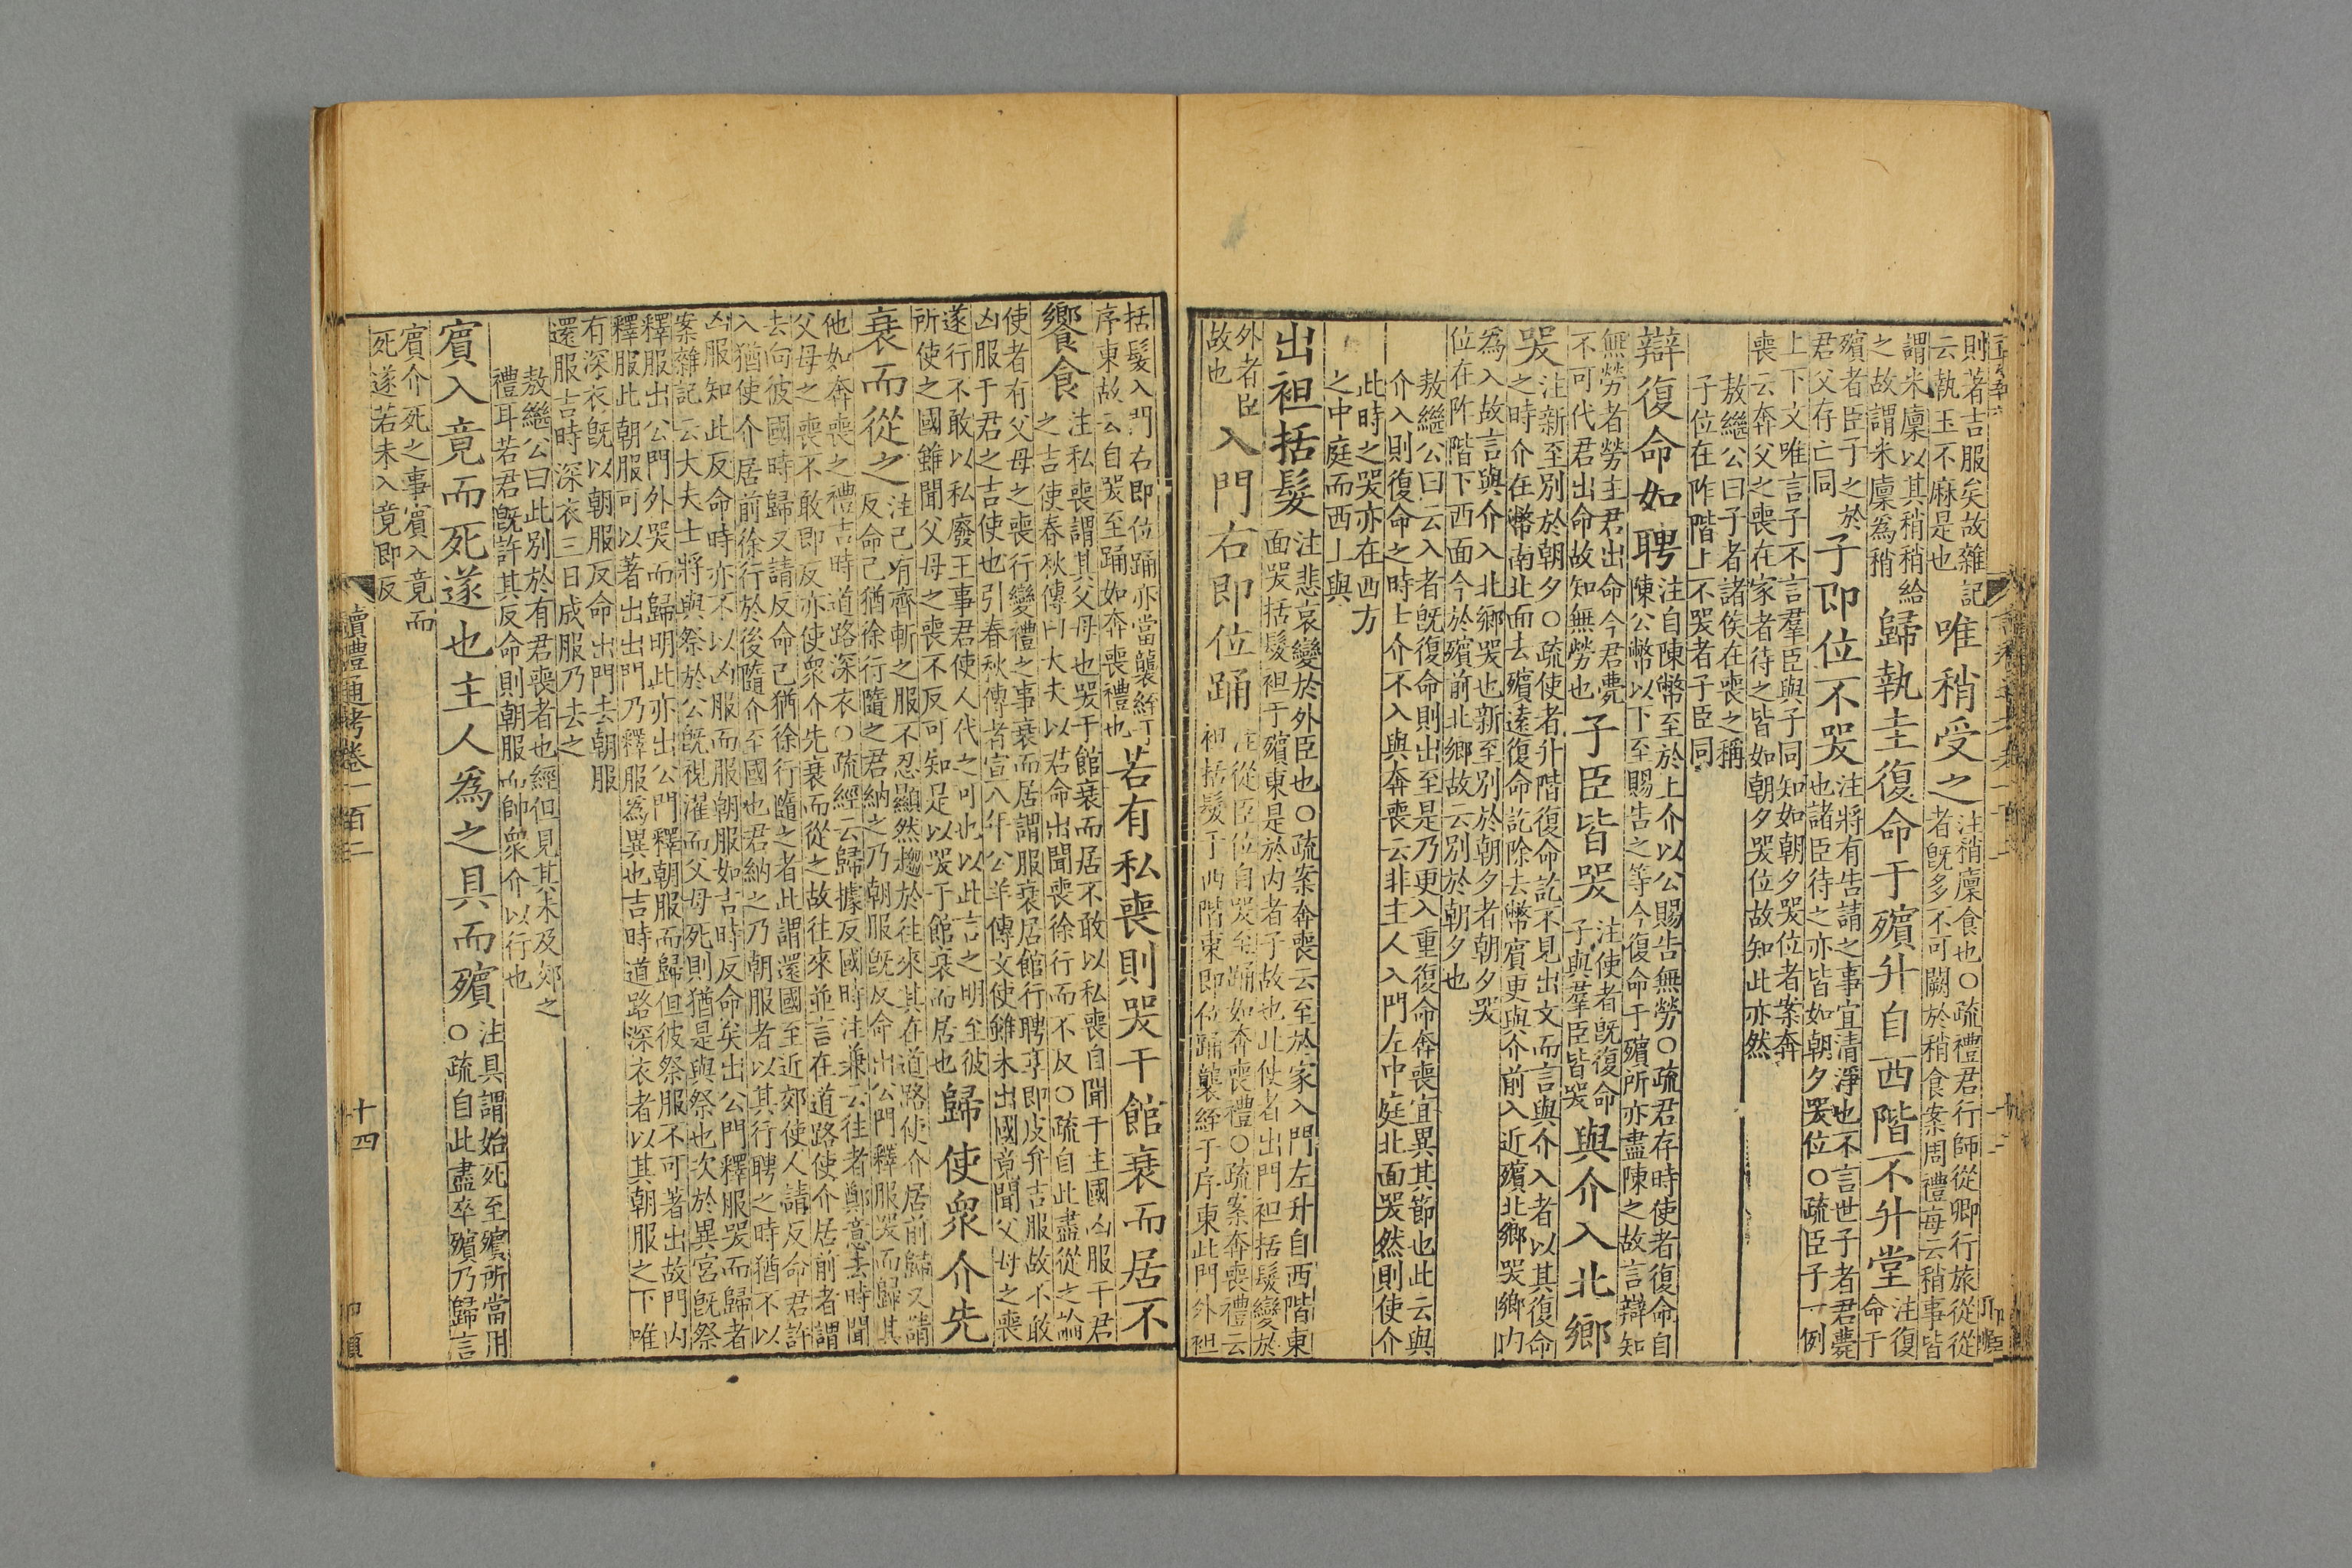 則著吉服矣故雜記
云執玉不麻是也
唯稍受之
注稍廩食也○疏禮君行師從卿行旅從從
者旣多不可闕於稍食案周禮每云稍事皆
謂米廩以其稍稍給
之故謂米廩爲稍
歸執圭復命于殯升自西階不升堂
注復
命于
殯者臣子之於
君父存亡同
子卽位不哭
注將有告請之事宜清淨也不言世子者君薨
也諸臣待之亦皆如朝夕哭位○疏臣子一例
上下文唯言子不言羣臣與子同知如朝夕哭位者案奔
喪云奔父之喪在家者待之皆如朝夕哭位故知此亦然
敖繼公曰子者諸侯在喪之稱
子位在阼階上不哭者子臣同
辯復命如聘
注自陳幣至於上介以公賜告無勞○疏君存時使者復命自
陳公幣以下至賜告之等今復命于殯所亦盡陳之故言辯知
無勞者勞主君出命今君薨
不可代君出命故知無勞也
子臣皆哭
注使者旣復命
子與羣臣皆哭
與介入北鄉
哭
注新至別於朝夕○疏使者升階復命訖不見出文而言與介入者以其復命
之時介在幣南北面去殯遠復命訖除去幣賓更與介前入近殯北鄉哭鄉内
爲入故言與介入北鄉哭也新至別於朝夕者朝夕哭
位在阼階下西面今於殯前北鄉故云別於朝夕也
敖繼公曰云入者旣復命則出至是乃更入重復命奔喪宜異其節也此云與
介入則復命之時士介不入與奔喪云非主人入門左中庭北面哭然則使介
此時之哭亦在西方
之中庭而西上與
出袒括髮
注悲哀變於外臣也○疏案奔喪云至於家入門左升自西階東
面哭括髮袒于殯東是於内者子故也此使者出門袒括髮變於
外者臣
故也
入門右卽位踊
注從臣位自哭至踊如奔喪禮○疏案奔喪禮云
袒括髮于西階東卽位踊襲絰于序東此門外袒
括髮入門右卽位踊亦當襲絰于
序東故云自哭至踊如奔喪禮也
若有私喪則哭于館衰而居不
饗食
注私喪謂其父母也哭于館衰而居不敢以私喪自聞于主國凶服于君
之吉使春秋傳曰大夫以君命出聞喪徐行而不反○疏自此盡從之論
使者有父母之喪行變禮之事衰而居謂服衰居館行聘享卽皮弁吉服故不敢
凶服于君之吉使也引春秋傳者宣八年公羊傳文使雖未出國竟聞父母之喪
遂行不敢以私廢王事君使人代之可也以此言之明至彼
所使之國雖聞父母之喪不反可知足以哭于館衰而居也
歸使衆介先
衰而從之
注己有齊斬之服不忍顯然趨於往來其在道路使介居前歸又請
反命己猶徐行隨之君納之乃朝服旣反命出公門釋服哭而歸其
他如奔喪之禮吉時道路深衣○疏經云歸據反國時注兼云往者鄭意去時聞
父母之喪不敢卽反亦使衆介先衰而從之故往來並言在道路使介居前者謂
去向彼國時歸又請反命己猶徐行隨之者此謂還國至近郊使人請反命君許
入猶使介居前徐行於後隨介至國也君納之乃朝服者以其行聘之時猶不以
凶服知此反命時亦不以凶服而服朝服如吉時反命矣出公門釋服哭而歸者
案雜記云大夫士將與祭於公旣視濯而父母死則猶是與祭也次於異宮旣祭
釋服出公門外哭而歸明此亦出公門釋朝服而歸但彼祭服不可著出故門内
釋服此朝服可以著出出門乃釋服爲異也吉時道路深衣者以其朝服之下唯
有深衣旣以朝服反命出門去朝服
還服吉時深衣三日成服乃去之
敖繼公曰此別於有君喪者也經但見其未及郊之
禮耳若君旣許其反命則朝服而帥衆介以行也
賓入竟而死遂也主人爲之具而殯
注具謂始死至殯所當用
○疏自此盡卒殯乃歸言
賓介死之事賓入竟而
死遂若未入竟卽反
讀禮通考卷一百二
十四